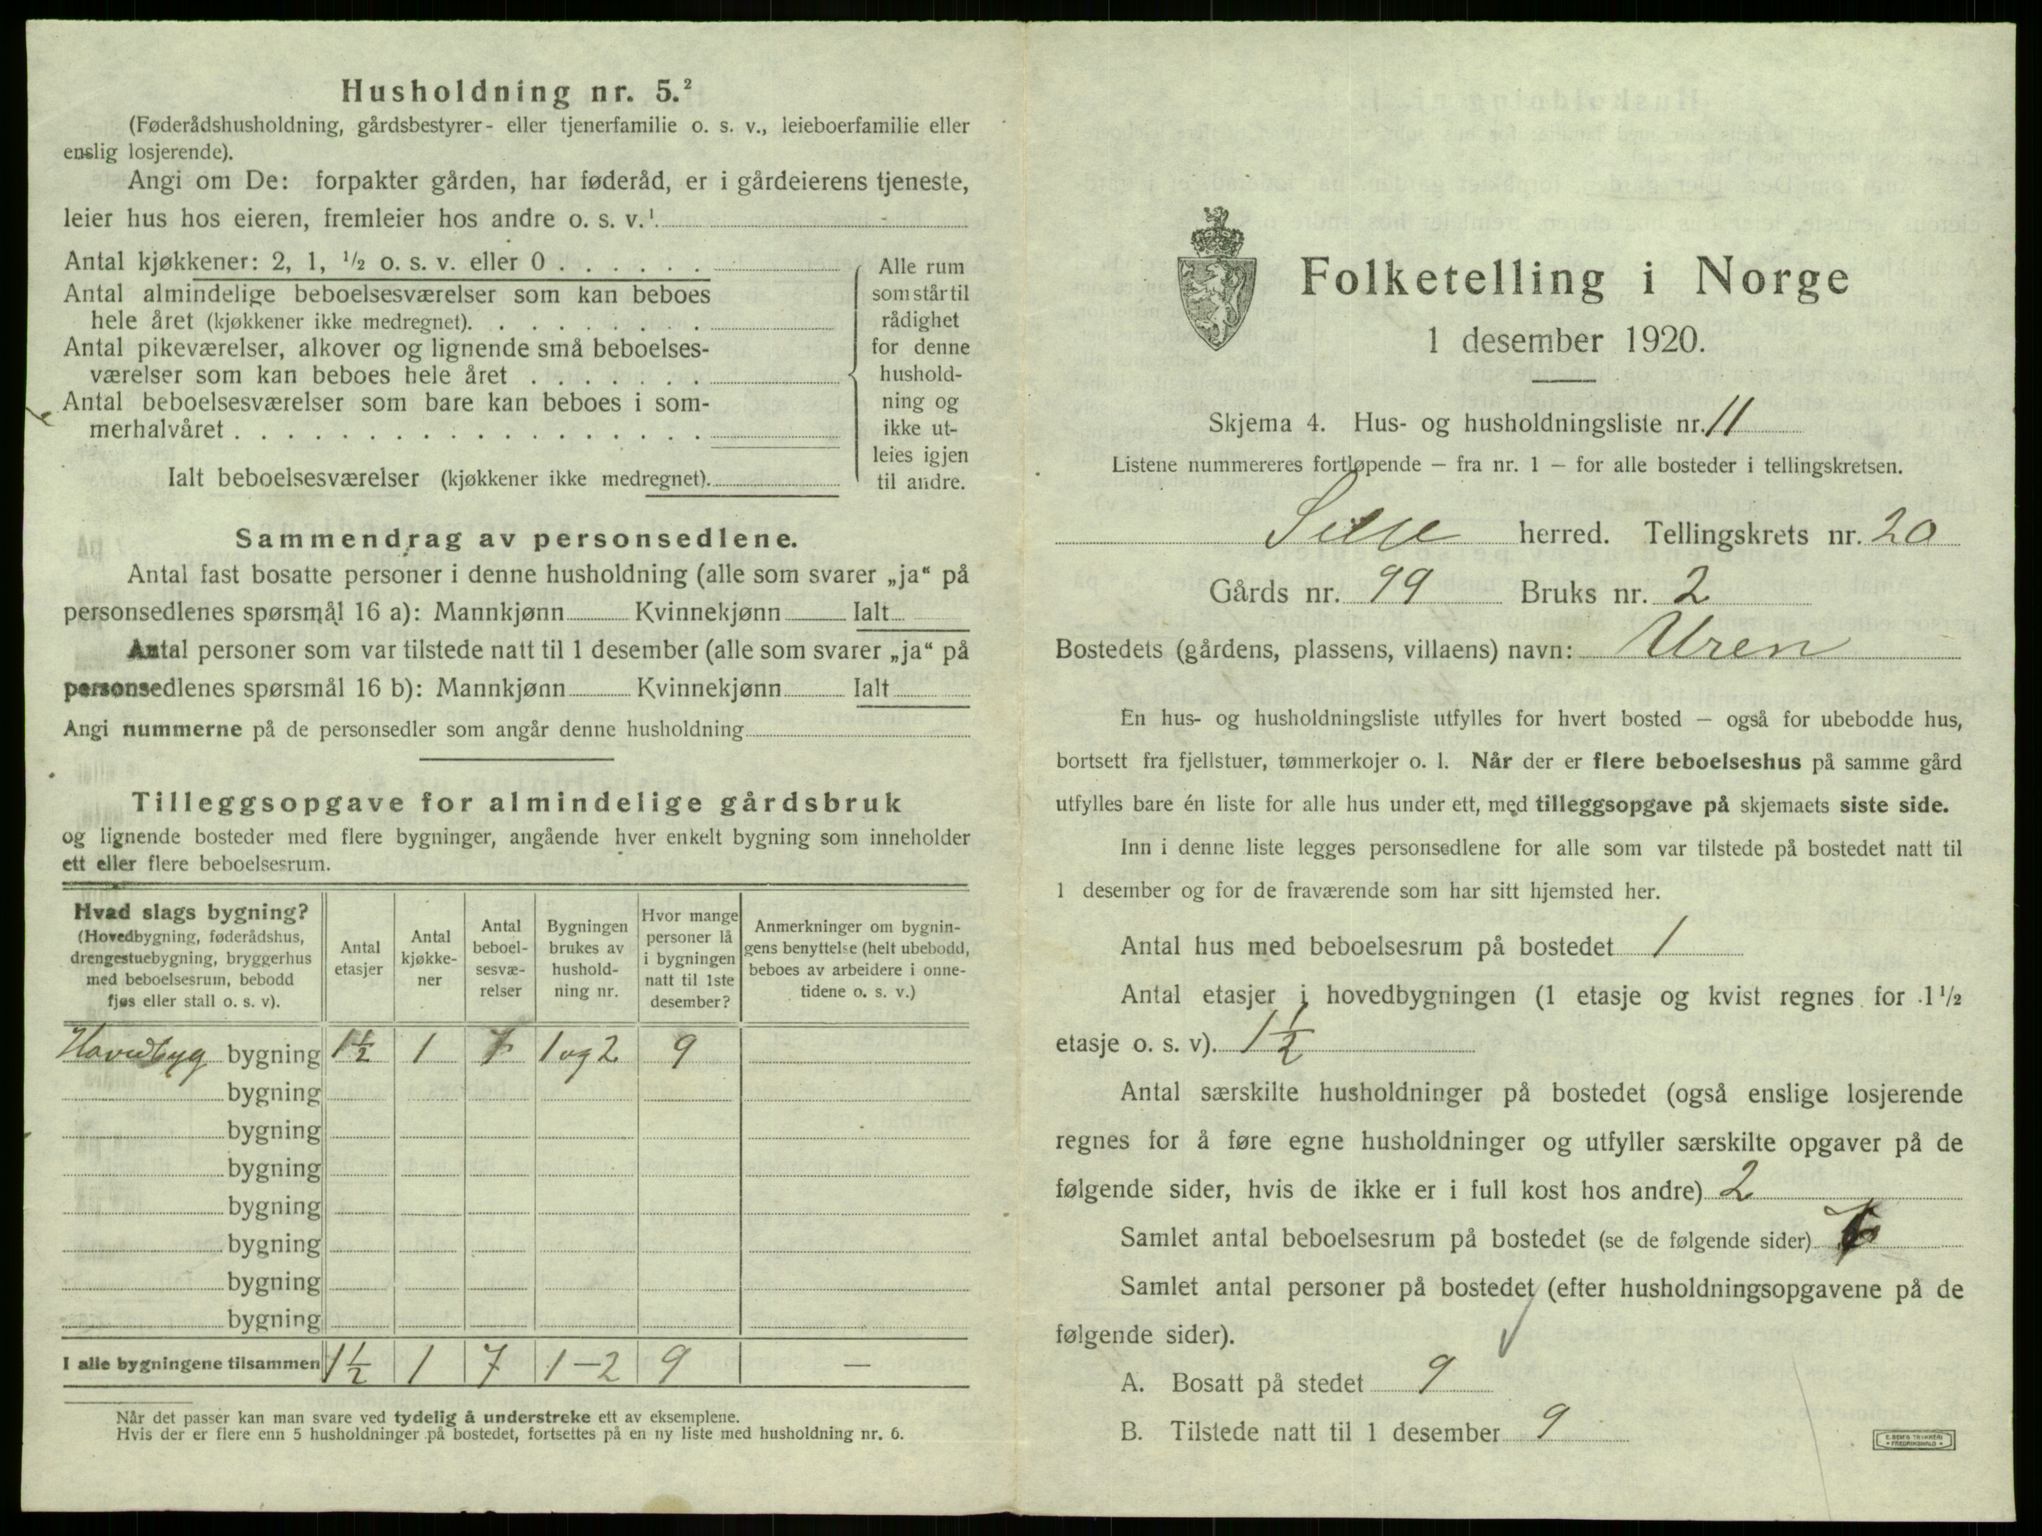 Husholdning nr. 5.²
(Føderådshusholdning, gårdsbestyrer- eller tjenerfamilie o. s. v., leieboerfamilie eller
enslig losjerende).
Angi om De: forpakter gården, har føderåd, er i gårdeierens tjeneste,
leier hus hos eieren, fremleier hos andre o. s. v.¹
Antal kjøkkener: 2, 1, ½ o. s. v. eller 0
Antal almindelige beboelsesværelser som kan beboes
hele året (kjøkkener ikke medregnet).
Antal pikeværelser, alkover og lignende små beboelses-
værelser som kan beboes hele året
Antal beboelsesværelser som bare kan beboes i som-
merhalvåret
Ialt beboelsesværelser (kjøkkener ikke medregnet).
Alle rum
som står til
rådighet
for denne
hushold-
ning og
ikke ut-
leies igjen
til andre.
Sammendrag av personsedlene.
Antal fast bosatte personer i denne husholdning (alle som svarer „ja“ på
personsedlenes spørsmål 16 a): Mannkjønn Kvinnekjønn Ialt
Antal personer som var tilstede natt til 1 desember (alle som svarer „ja“ på
personsedlenes spørsmål 16 b): Mannkjønn Kvinnekjønn Ialt
Angi nummerne på de personsedler som angår denne husholdning
Tilleggsopgave for almindelige gårdsbruk
og lignende bosteder med flere bygninger, angående hver enkelt bygning som inneholder
ett eller flere beboelsesrum.
Hvad slags bygning?
(Hovedbygning, føderådshus,
drengestuebygning, bryggerhus
med beboelsesrum, bebodd
fjøs eller stall o. s. v).
Antal
etasjer
Antal
kjøkke-
ner
Antal
beboel-
sesvæ-
relser
Bygningen
brukes av
hushold-
ning nr.
Hvor mange
personer lå
i bygningen
natt til 1ste
desember?
Anmerkninger om bygnin-
gens benyttelse (helt ubebodd,
beboes av arbeidere i onne-
tidene o. s. v.)
Hovedbyg bygning 1½ 1 7 1 og 2 9
bygning
bygning
bygning
bygning
bygning
bygning
bygning
I alle bygningene tilsammen 1½ 1 7 1-2 9 —
Når det passer kan man svare ved tydelig å understreke ett av eksemplene.
Hvis der er flere enn 5 husholdninger på bostedet, fortsettes på en ny liste med husholdning nr. 6.
Folketelling i Norge
1 desember 1920.
Skjema 4. Hus- og husholdningsliste nr. 11
Listene nummereres fortløpende – fra nr. 1 – for alle bosteder i tellingskretsen.
Selje herred. Tellingskrets nr. 20
Gårds nr. 99 Bruks nr. 2
Bostedets (gårdens, plassens, villaens) navn: Uren
En hus- og husholdningsliste utfylles for hvert bosted – også for ubebodde hus,
bortsett fra fjellstuer, tømmerkojer o. l. Når der er flere beboelseshus på samme gård
utfylles bare én liste for alle hus under ett, med tilleggsopgave på skjemaets siste side.
Inn i denne liste legges personsedlene for alle som var tilstede på bostedet natt til
1 desember og for de fraværende som har sitt hjemsted her.
Antal hus med beboelsesrum på bostedet 1
Antal etasjer i hovedbygningen (1 etasje og kvist regnes for 1½
etasje o. s. v). 1½
Antal særskilte husholdninger på bostedet (også enslige losjerende
regnes for å føre egne husholdninger og utfyller særskilte opgaver på de
følgende sider, hvis de ikke er i full kost hos andre) 2
Samlet antal beboelsesrum på bostedet (se de følgende sider)
Samlet antal personer på bostedet (efter husholdningsopgavene på de
følgende sider).
A. Bosatt på stedet 9
B. Tilstede natt til 1 desember 9